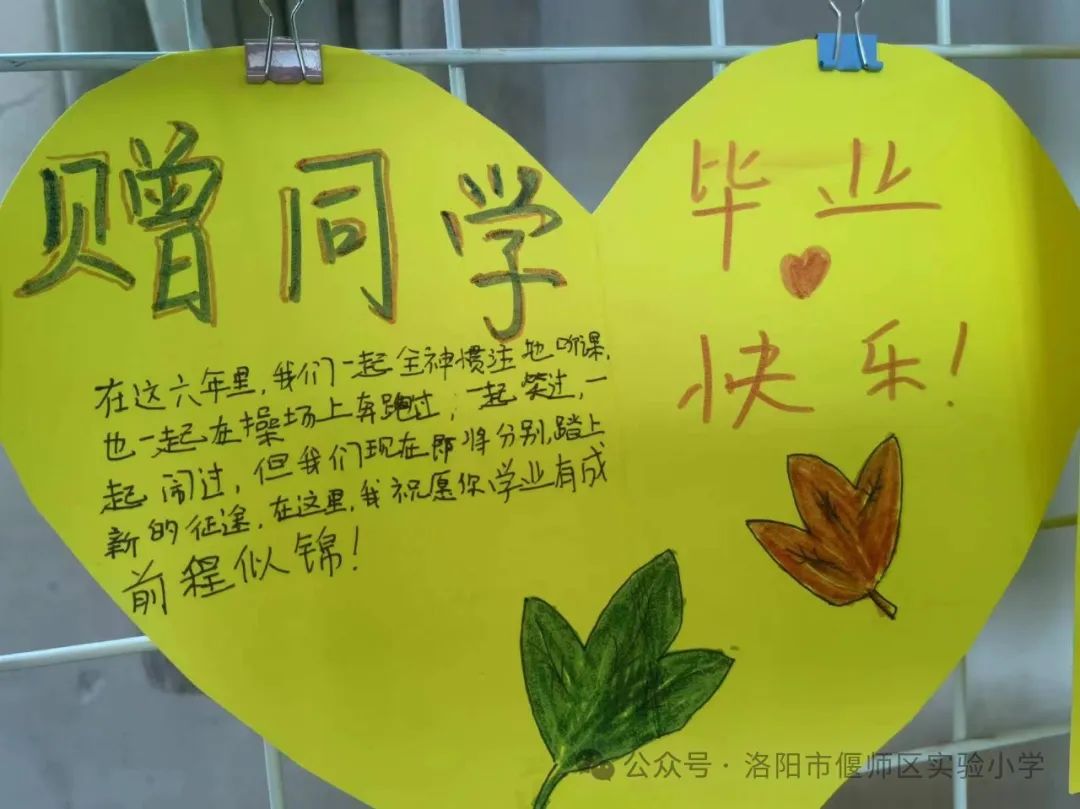 赠同学
在这六年里,我们一起全神惯注地听课,
也一起在操场上奔跑过;一起笑过,一
起闹过,但我们现在即将分别,踏上
新的征途,在这里,我祝愿你学业有成
前程似锦!
毕业
快乐!
公众号·洛阳市偃师区实验小学